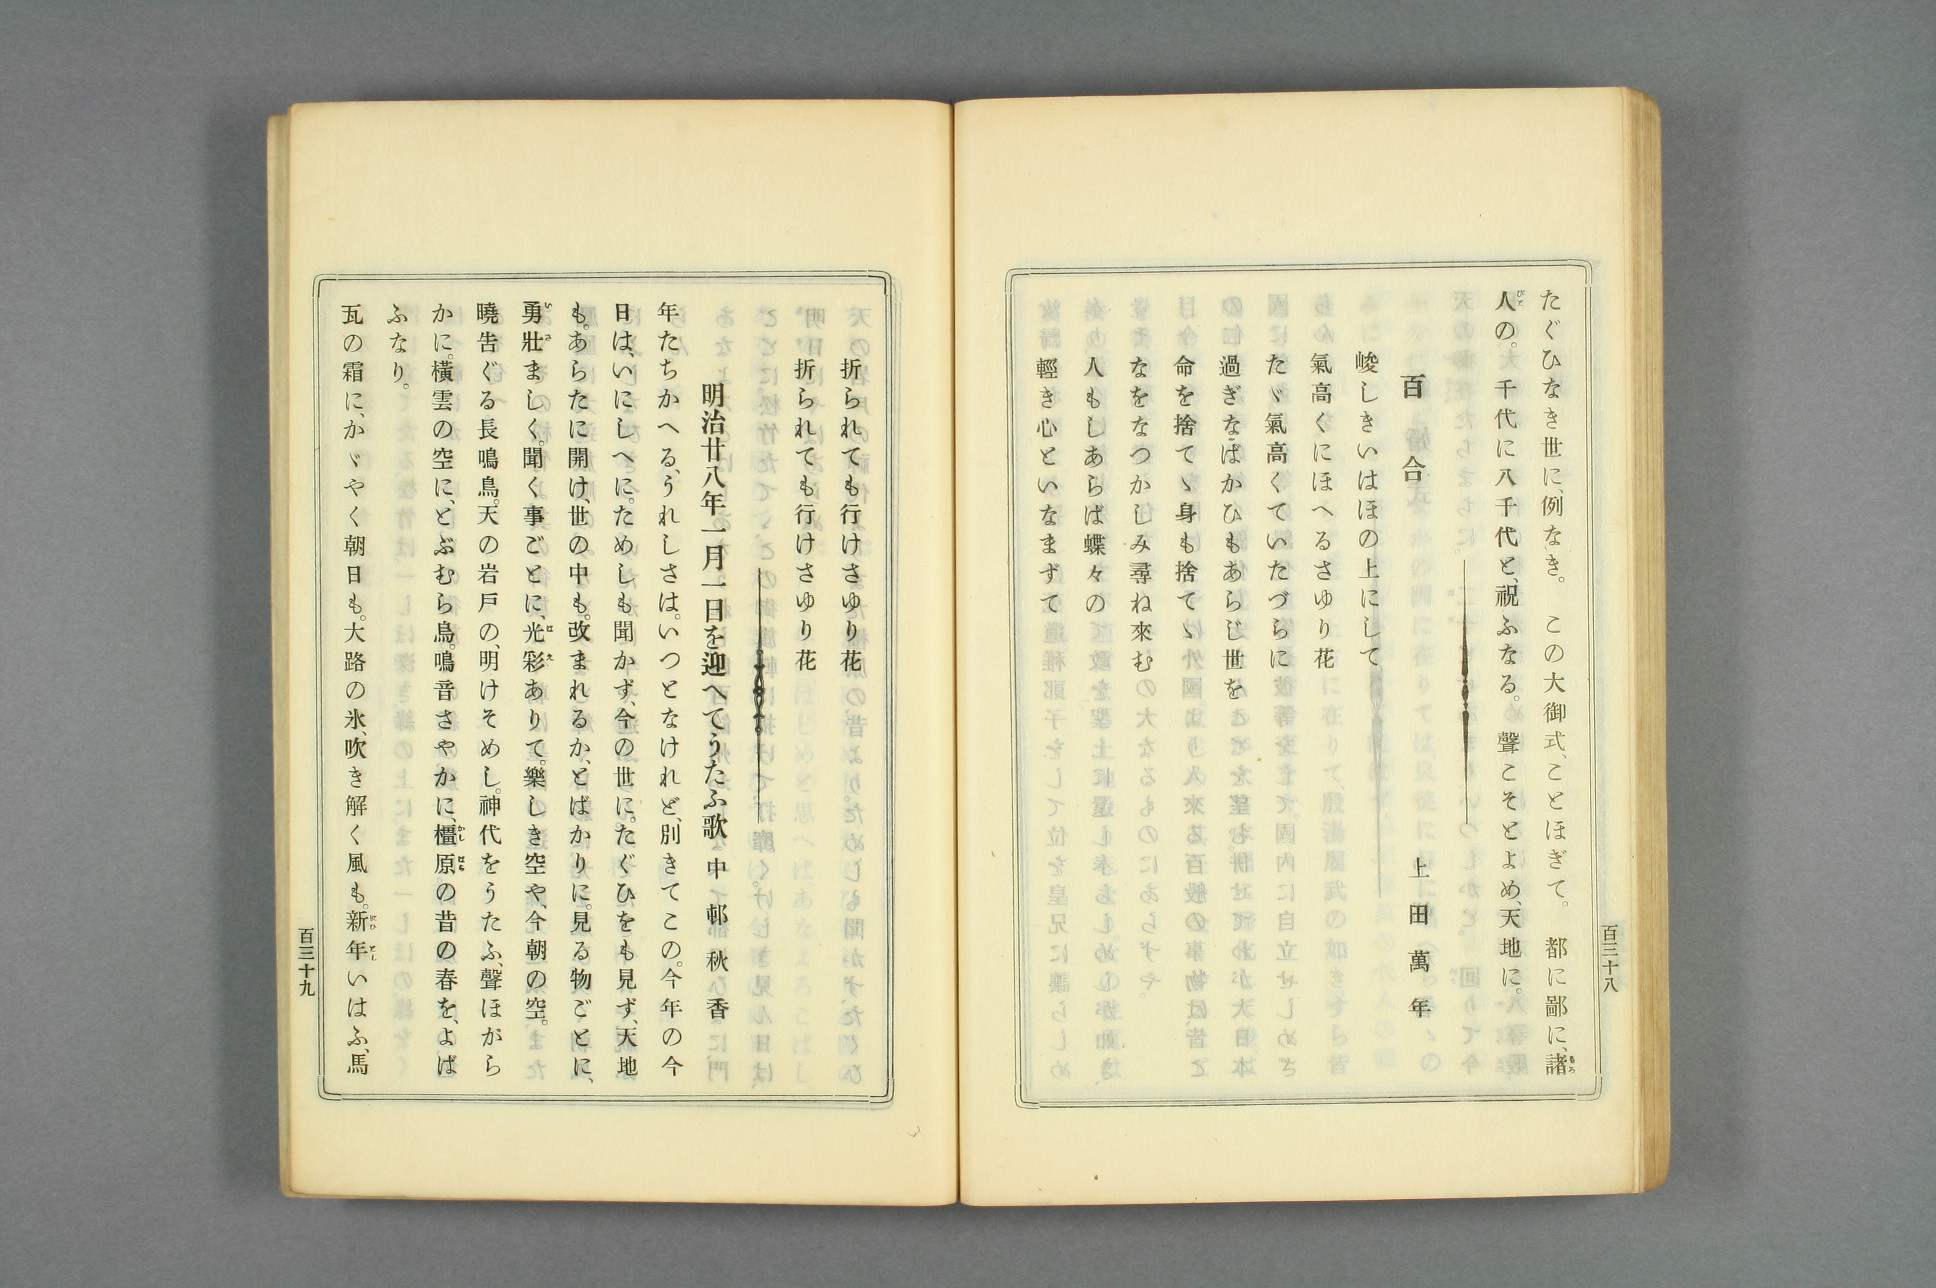 たぐひなき世に、例なき。　この大御式、ことほぎて。　都に鄙に、諸
人の。　千代に八千代と、祝ふなる。聲こそとよめ、天地に。
百合
上田萬年
峻しきいはほの上にして
氣高くにほへるさゆり花
たゞ氣高くていたづらに
過ぎなばかひもあらじ世を
命を捨てゝ身も捨てゝ
なをなつかしみ尋ね來む
人もしあらば蝶々の
輕き心といなまずて
百三十八
折られても行けさゆり花
折られても行けさゆり花
明治廿八年一月一日を迎へてうたふ歌
中邨秋香
年たちかへる、うれしさは。いつとなけれど、別きてこの。今年の今
日は、いにしへに。ためしも聞かず、今の世に。たぐひをも見ず、天地
も。あらたに開け、世の中も。改まれるか、とばかりに。見る物ごとに、
勇壯ましく。聞く事ごとに、光彩ありて。樂しき空や、今朝の空。
曉告ぐる長鳴鳥。天の岩戸の、明けそめし。神代をうたふ、聲ほがら
かに。橫雲の空に、とぶむら鳥。鳴音さやかに、橿原の昔の春を、よば
ふなり。
瓦の霜に、かゞやく朝日も。大路の氷、吹き解く風も。新年いはふ、馬
百三十九